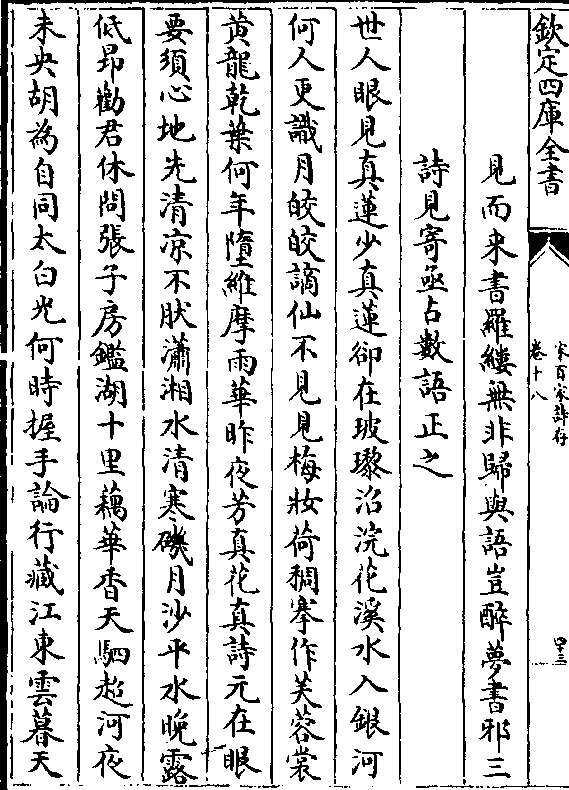 欽定四庫全書
宋百家詩存
卷十八
四三
見而来書羅縷無非歸與語豈醉夢書邪三
詩見寄亟占數語正之
世人眼見真蓮少真蓮卻在玻瓈沼浣花溪水入銀河
何人更識月皎皎謫仙不見見梅妝荷稠搴作芙蓉裳
黄龍乾葉何年墮維摩雨華昨夜芳真花真詩元在眼
要須心地先清凉不肰瀟湘水清寒磯月沙平水晚露
低昂勸君休問張子房鑑湖十里藕華香天駟超河夜
未央胡為自同太白光何時握手論行藏江東雲暮天